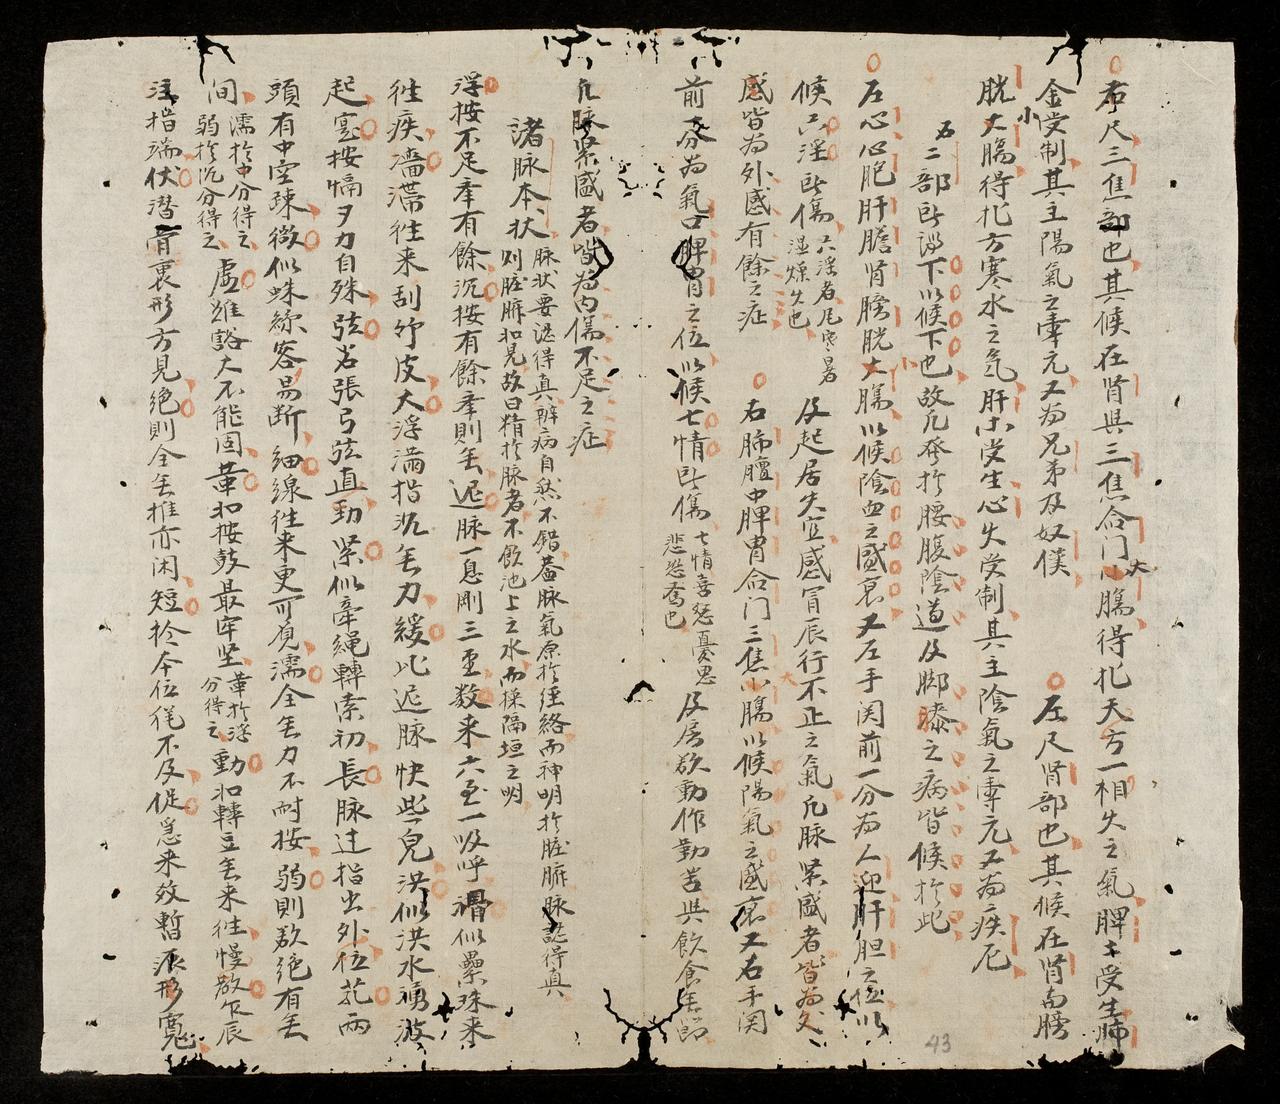 右尺三焦部也其候在肾與三焦命门小膓得北天方一相火之氣脾土受生肺
大
金受制其主陽氣之專兀又為兄弟及奴僕
左尺肾部也其候在肾与膀
胱大膓得北方寒水之氣肝木受生心火受制其主陰氣之專兀又為疾厄
小
右二部所診下以候下也故凡發於腰腹陰道及脚膝之病皆候於此
左心心胞肝膽肾膀胱大膓以候陰血之盛衰又左手関前一分為人迎肝胆之位以
小
候六淫所傷
六淫者風寒暑
湿燥火也
及起居失宜感冒辰行不正之氣凡脉緊盛者皆為外
感皆為外感有餘之症
右肺膻中脾胃命门三焦小膓以候陽氣之盛衰又右手関
大
前一分為氣口脾胃之位以候七情所傷
七情喜怒憂思
悲恐驚也
及房欲動作勤苦與飲食無節
凡脉緊盛者皆為内傷不足之症
諸脉本状
脉状要認得真辨病自然不錯蓋脉氣原於経絡而神明於臟腑脉認得真
则臟腑如見故曰精於脉者不飲池上之水而採隔垣之明
浮按不足牽有餘沉按有餘牽則無遅脉一息剛三至数来六至一吸呼滑似累珠来
徃疾濇滯徃来刮竹皮大浮满指沉無力緩比遅脉快些兒洪似洪水湧波
起寔按愊々力自殊弦若張弓弦直勁緊似牽繩轉索初長脉过指出外位芤兩
頭有中空疎微似蛛絲容易断細線徃来更可負濡全無力不耐按弱則欲絶有無
间
濡於中分得之
弱於沉分得之
虚雖豁大不能固革如按鼓最牢坚
革於浮
分得之
動如轉豆無来徃慢散反辰
注指端伏潜骨裏形方見絶則全無推亦闲短於本位徃不及促急来效暫㳂形寛
43